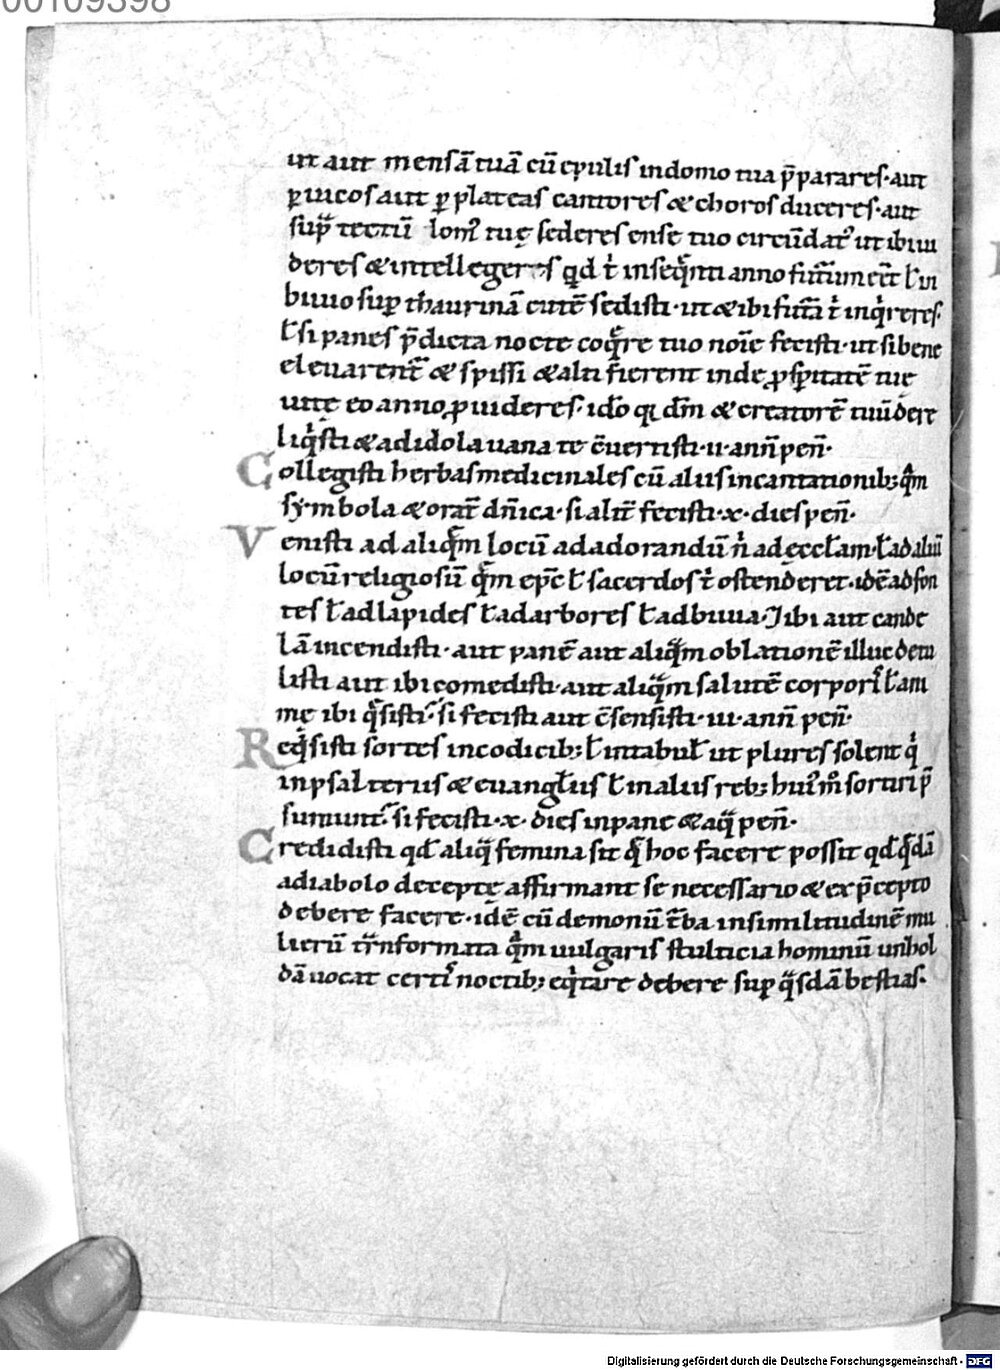 00109398
ut aut mensā tuā cū epulis in domo tua p̄parares· aut
ꝑ uicos aut ꝑ plateas cantores & choros duceres· aut
sup̄ tectū domꝰ tuę sederes ense tuo circūdatꝰ ut ibi ui
deres & intellegeres qd t̄ in seq̄nti anno futurum eēt ƚ in
biuio sup̄ thaurinā cutē sedisti· ut & ibi futūa t̄ inq̄reres·
ƚ si panes p̄dicta nocte coq̄re tuo noīe fecisti· ut si bene
eleuarent̄ & spissi & alti fierent inde ꝓsp̄itatē tuę
uitę eo anno ꝓuideres· ido qi dm̄ & creatorē tuū dere
liq̄sti & ad idola uana te c̄uertisti· ii· ann̄ pen̄·
Collegisti herbas medicinales cū aliis incantationib; q̄m
symbola & orat̄ dn̄ica· si alit̄ fecisti· x· dies pen̄·
Venisti ad aliq̄m locū ad adorandū n̄ ad ęccƚam· ƚ ad aliū
locū religiosū q̄m ep̄c ƚ sacerdos t̄ ostenderet· idē ad fon
tes ƚ ad lapides ƚ ad arbores ƚ ad biuia· & ibi aut cande
lā incendisti· aut panē aut aliq̄m oblationē illuc detu
listi aut ibi comedisti· aut aliq̄m salutē corporis ƚ ani
mę ibi q̄sisti· si fecisti aut c̄sensisti· iii· ann̄ pen̄·
Req̄sisti sortes in codicib; ƚ in tabuƚ ut plures solent q̄
in psalteriis & euangƚiis ƚ in aliis reb; huiꝰm̄ sortiri p̄
sumunt· si fecisti· x· dies in pane & aq̄ pen̄·
Credidisti qd aliq̄ femina sit q̄ hoc facere possit qd q̄dā
a diabolo deceptę affirmant se necessario & ex p̄cepto
debere facere· idē cū demonū t̄ba in similitudinē mu
lierū tr̄nformata q̄m uulgaris stulticia hominū unhol
dā uocat certis noctib; eq̄tare debere sup q̄sdā bestias·
Digitalisierung gefördert durch die Deutsche Forschungsgemeinschaft - DFG